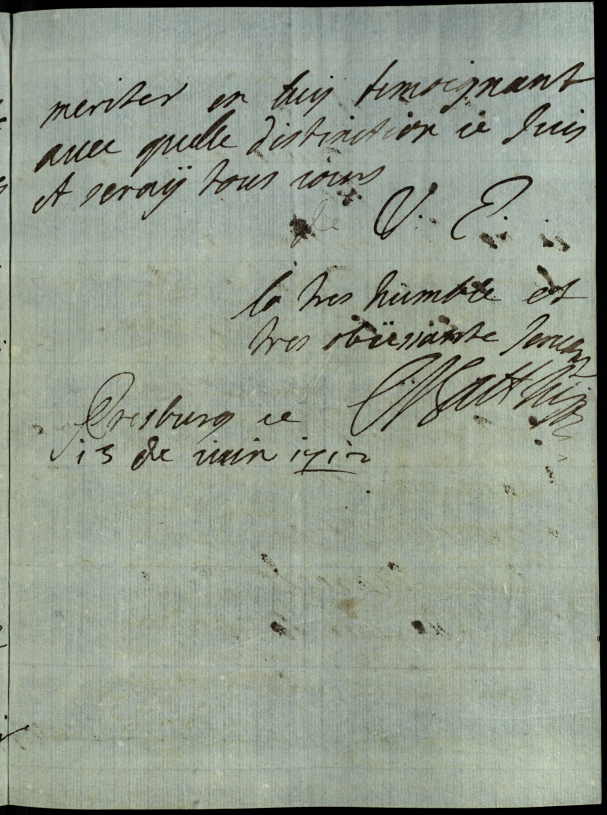 meriter en luy temoignant
avec quelle distinction ie suis
et seraÿ tous iours
de V. E.
la tres humble et
tres obeissante
Presburg ce
13 de iuin 1712